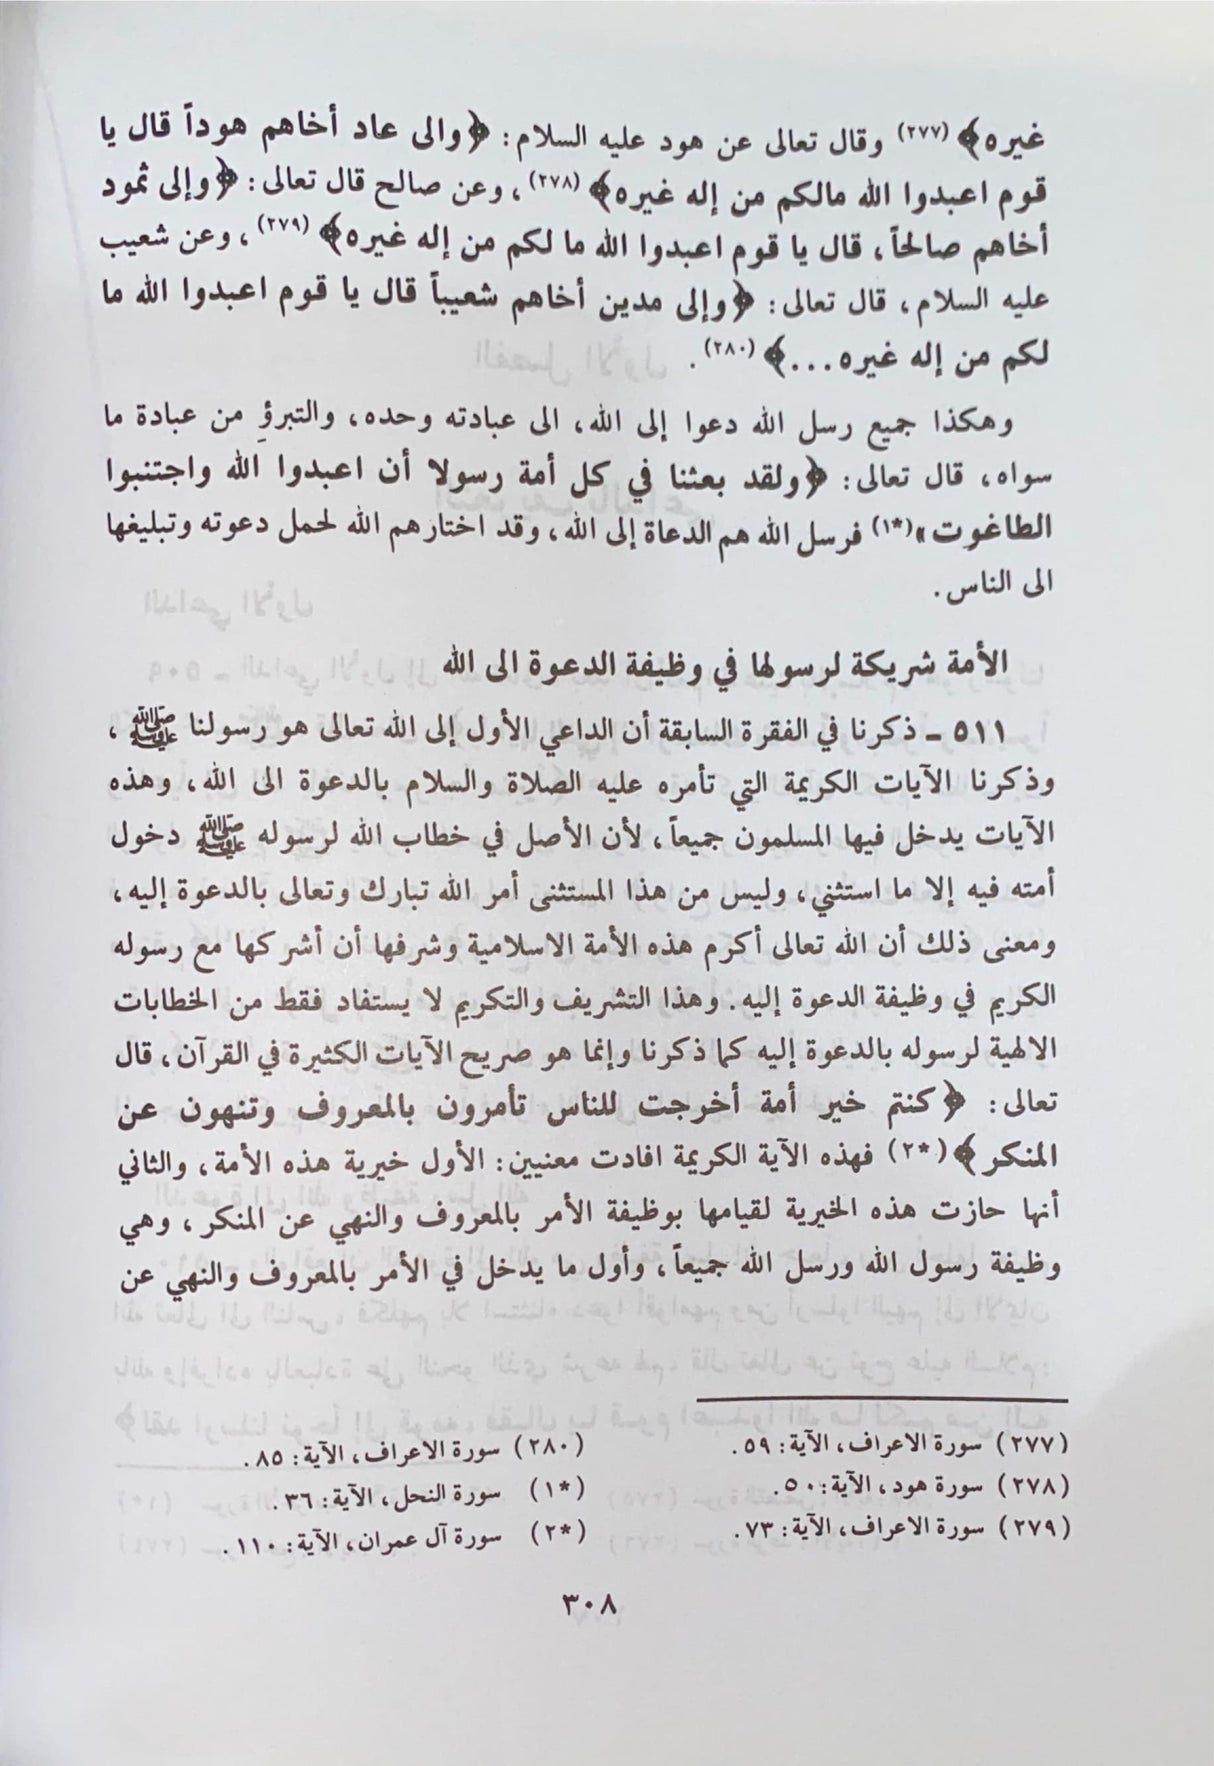 غيره﴾ (٢٧٧) وقال تعالى عن هود عليه السلام: ﴿والى عاد أخاهم هوداً قال يا
قوم اعبدوا الله مالكم من إله غيره﴾ (٢٧٨)، وعن صالح قال تعالى: ﴿وإلى ثمود
أخاهم صالحاً، قال يا قوم اعبدوا الله ما لكم من إله غيره﴾ (٢٧٩)، وعن شعيب
عليه السلام، قال تعالى: ﴿وإلى مدين أخاهم شعيباً قال يا قوم اعبدوا الله ما
لكم من إله غيره...﴾ (٢٨٠).
وهكذا جميع رسل الله دعوا إلى الله، الى عبادته وحده، والتبرؤِ من عبادة ما
سواه، قال تعالى: ﴿ولقد بعثنا في كل أمة رسولا أن اعبدوا الله واجتنبوا
الطاغوت»(*١) فرسل الله هم الدعاة إلى الله، وقد اختارهم الله لحمل دعوته وتبليغها
الى الناس.
الأمة شريكة لرسولها في وظيفة الدعوة الى الله
٥١١ ـ ذكرنا في الفقرة السابقة أن الداعي الأول إلى الله تعالى هو رسولنا ﷺ،
وذكرنا الآيات الكريمة التي تأمره عليه الصلاة والسلام بالدعوة الى الله، وهذه
الآيات يدخل فيها المسلمون جميعاً، لأن الأصل في خطاب الله لرسوله ﷺ دخول
أمته فيه إلا ما استثني، وليس من هذا المستثنى أمر الله تبارك وتعالى بالدعوة إليه،
ومعنى ذلك أن الله تعالى أكرم هذه الأمة الاسلامية وشرفها أن أشركها مع رسوله
الكريم في وظيفة الدعوة إليه. وهذا التشريف والتكريم لا يستفاد فقط من الخطابات
الالهية لرسوله بالدعوة إليه كما ذكرنا وإنما هو صريح الآيات الكثيرة في القرآن، قال
تعالى: ﴿كنتم خير أمة أخرجت للناس تأمرون بالمعروف وتنهون عن
المنكر﴾(*٢) فهذه الآية الكريمة افادت معنيين: الأول خيرية هذه الأمة، والثاني
أنها حازت هذه الخيرية لقيامها بوظيفة الأمر بالمعروف والنهي عن المنكر، وهي
وظيفة رسول الله ورسل الله جميعاً، وأول ما يدخل في الأمر بالمعروف والنهي عن
(٢٧٧) سورة الاعراف، الآية: ٥٩.
(٢٧٨) سورة هود، الآية: ٥٠.
(٢٧٩) سورة الاعراف، الآية: ٧٣.
(٢٨٠) سورة الاعراف، الآية: ٨٥.
(*١) سورة النحل، الآية: ٣٦.
(*٢) سورة آل عمران، الآية: ١١٠.
٣٠٨